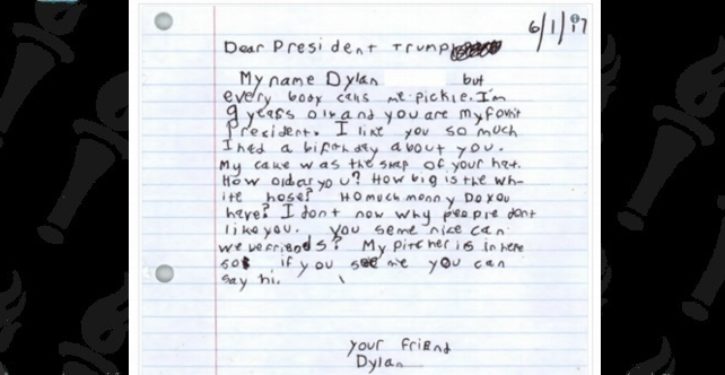 6/1/17
Dear President Trump
My name Dylan but
every body cans me pickle. I'm
9 years old and you are my favrit
President. I like you so much
I had a birthday about you.
My cake was the shap of your hat.
How old are you? How big is the wh-
ite hose? Homuch monny Do you
have? I dont now why people dont
like you. you seme nice can
we berriends? My pitcher is in here
so if you see me you can
say hi.
your friend
Dylan